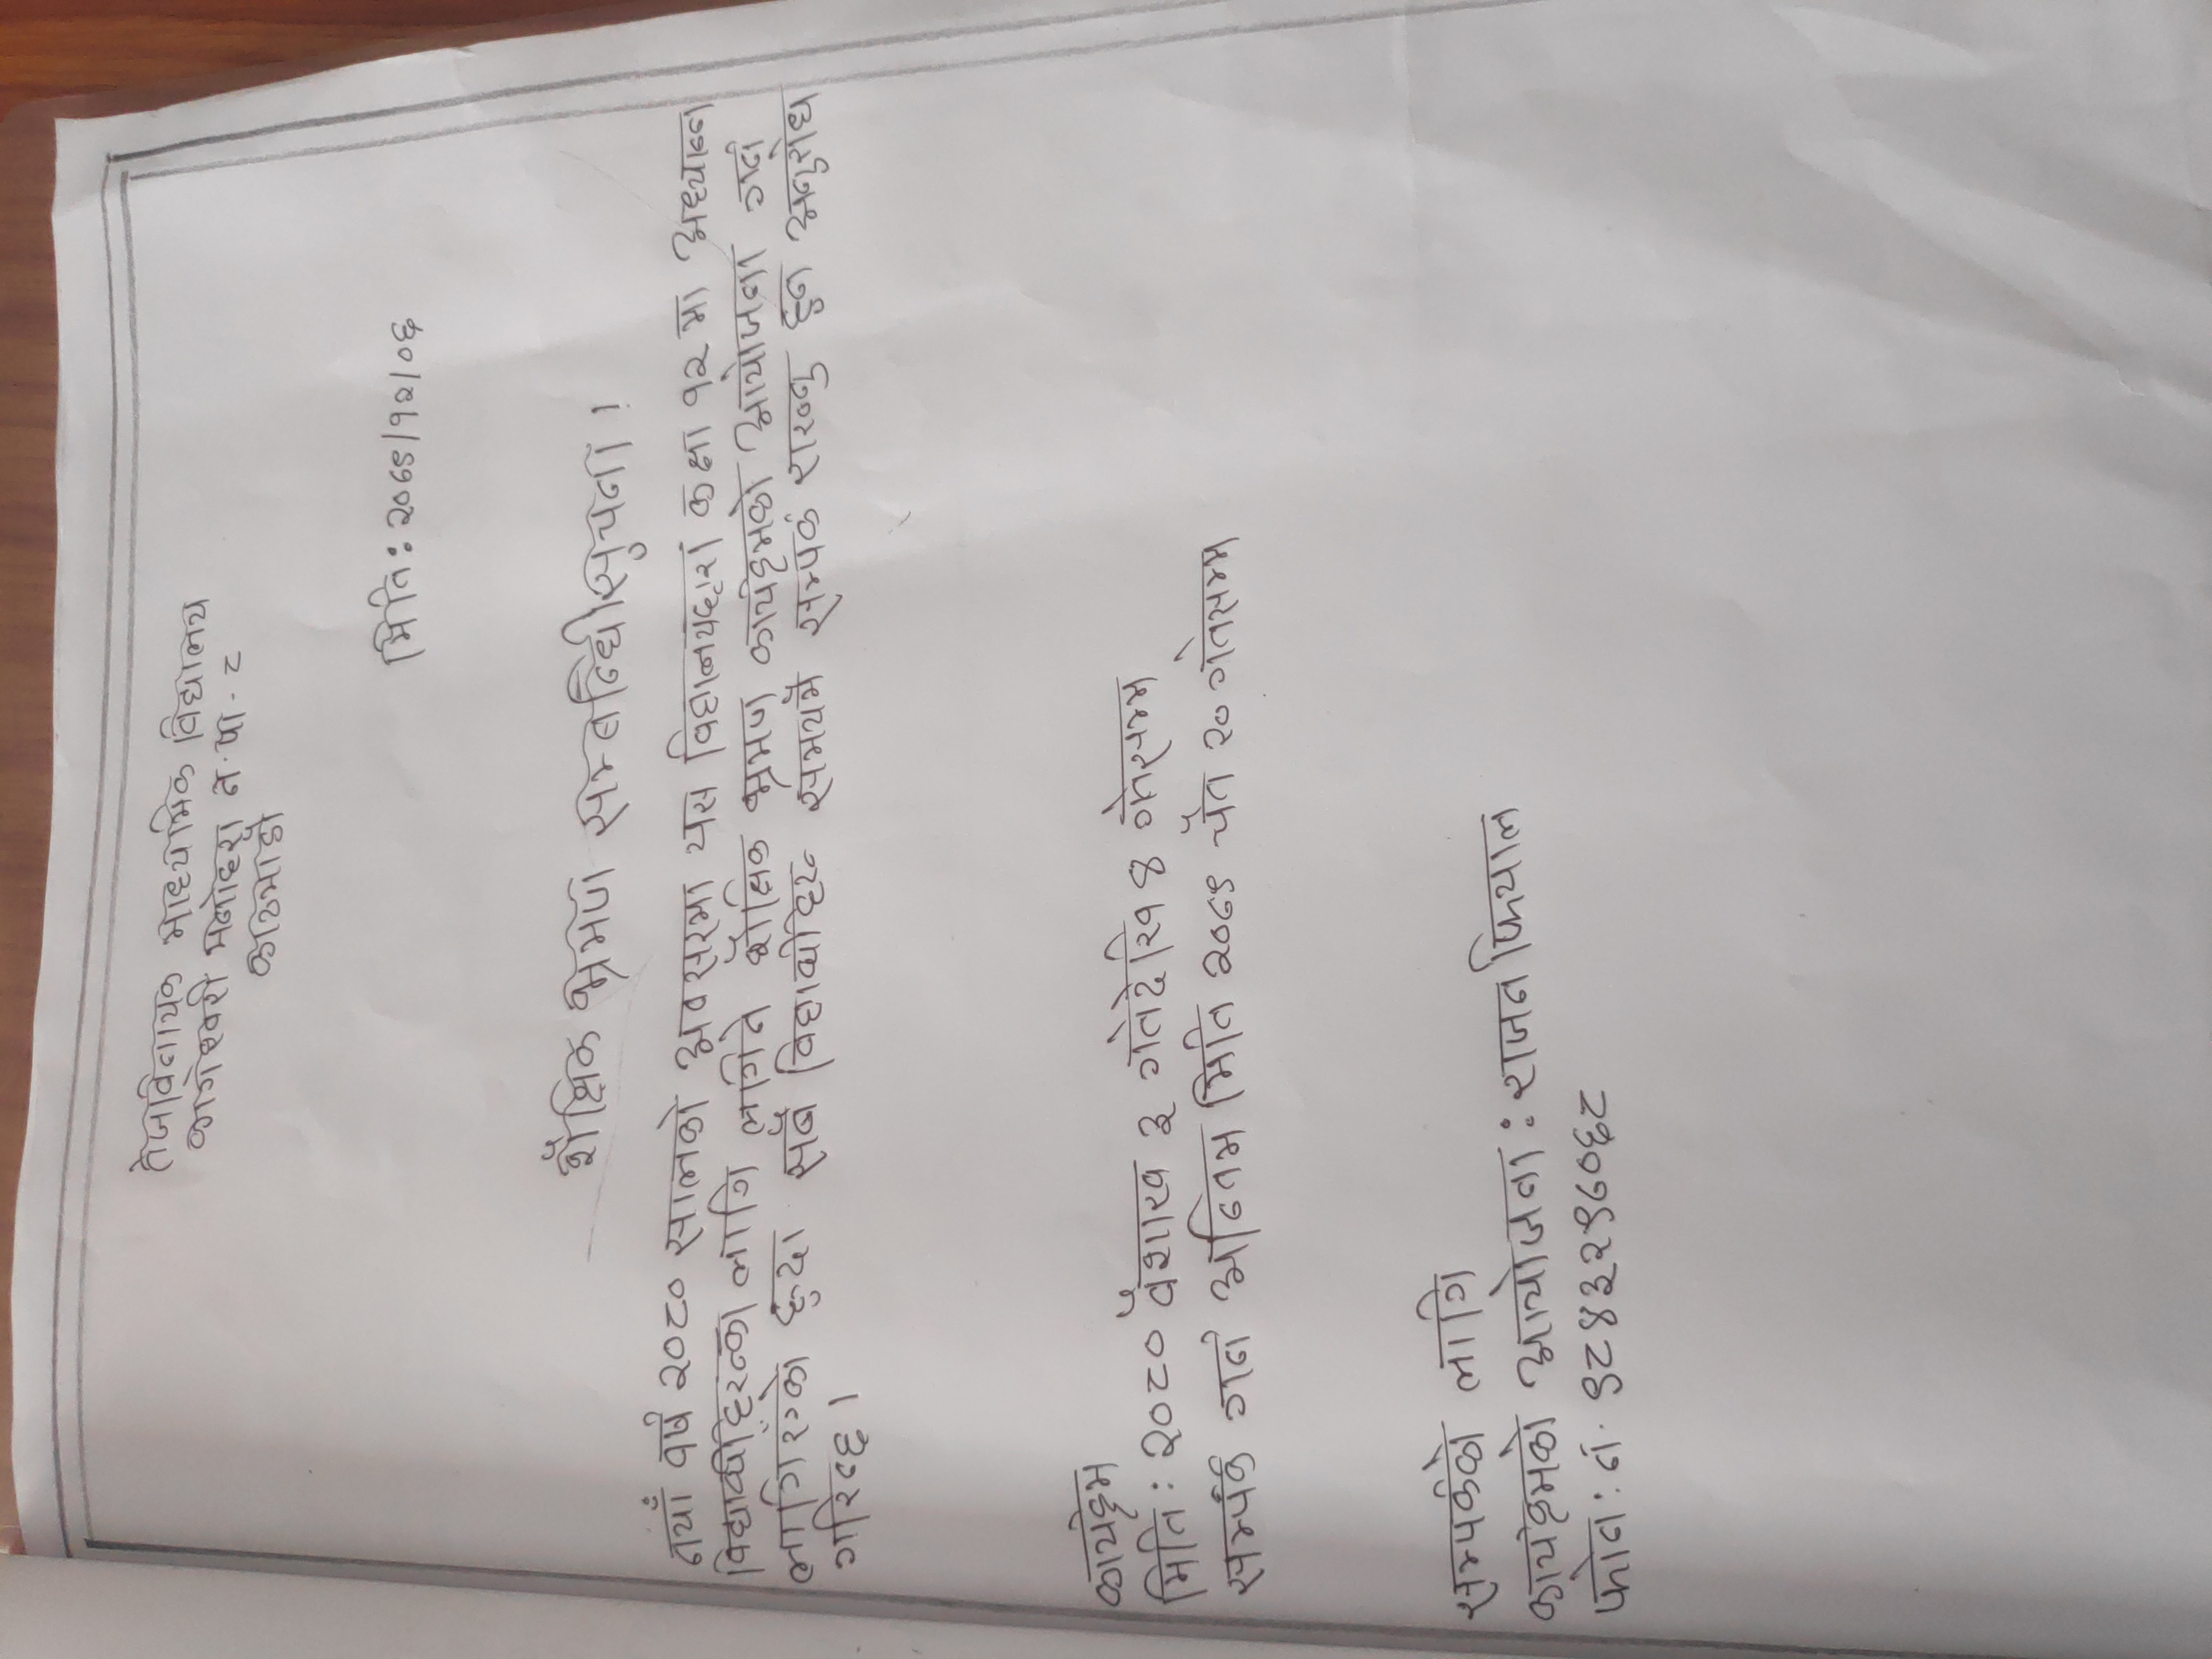 तेजविनायक माध्यमिक विद्यालय
कागेश्वरी मनोहरा न.पा. ८
काठमाडौ
मिति: २०७९/१२/०६
शैक्षिक भ्रमण सम्बन्धि सुचना !
नयाँ वर्ष २०८० सालको अवसरमा यस विद्यालयद्वारा कक्षा १२ मा अध्यान्न
विद्यार्थीहरुका लागि लगिने शैक्षिक भ्रमण कार्यक्रमको आयोजना गर्न
लागिएको हुदा सबै विद्यार्थीहरु समयमै सम्पर्क राख्नु हुन अनुरोध
गरिन्छ ।
कार्यक्रम
मिति: २०८० वैशाख ३ गतेदेखि ४ गतेसम्म
सम्पर्क गर्न अन्तिम मिति २०७९ चैत २० गतेसम्म
सम्पर्कको लागि
कार्यक्रमको आयोजना: राजन फियाल
फोन: नं. ९८४३२९७०६८